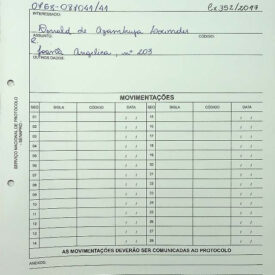 INTERESSADO:
ASSUNTO:
CÓDIGO:
Joana Angelica, nº 203
OUTROS DADOS:
MOVIMENTAÇÕES
SEQ SIGLA CÓDIGO DATA SEQ SIGLA CÓDIGO DATA
01 / / 15 / /
02 / / 16 / /
03 / / 17 / /
04 / / 18 / /
05 / / 19 / /
06 / / 20 / /
07 / / 21 / /
08 / / 22 / /
09 / / 23 / /
10 / / 24 / /
11 / / 25 / /
12 / / 26 / /
13 / / 27 / /
14 / / 28 / /
AS MOVIMENTAÇÕES DEVERÃO SER COMUNICADAS AO PROTOCOLO
ANEXOS:
SERVIÇO NACIONAL DE PROTOCOLO